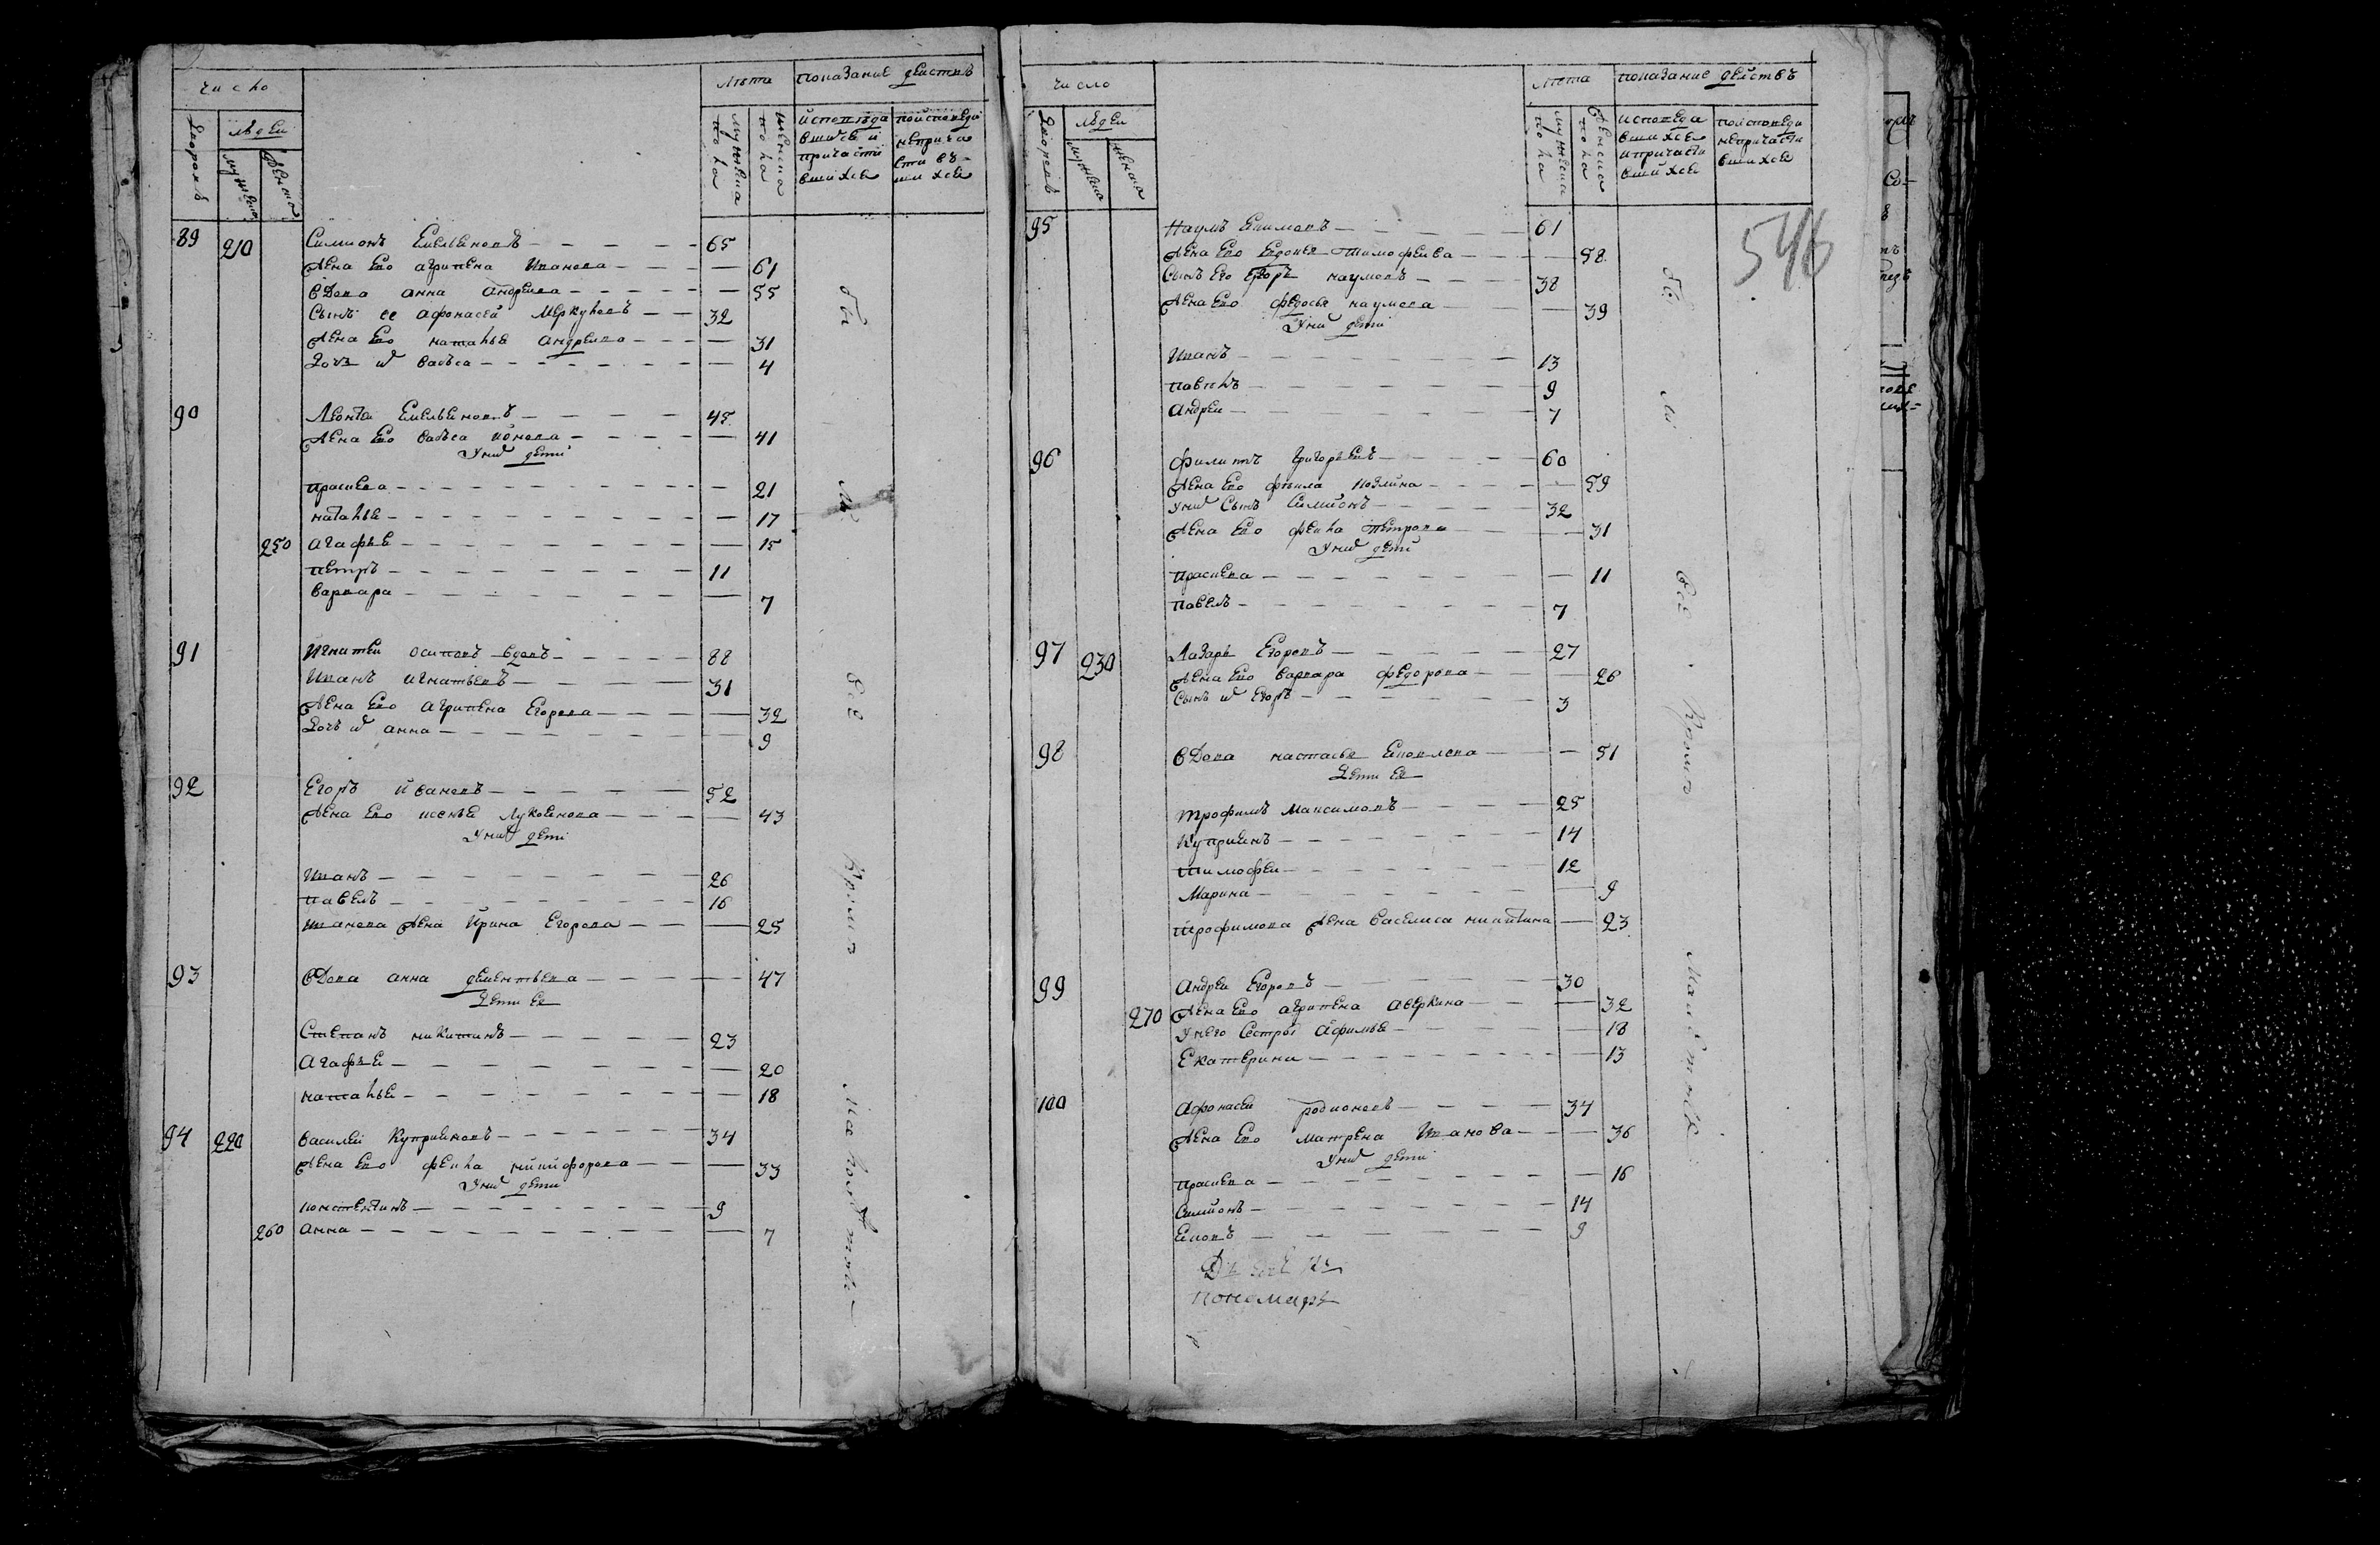 число
лѣта показание действъ
дворовъ людей мужеска женска мужеска пола женска пола исповѣдавшихся и причастившихся по исповеди непричастившихся
89 210 Симионъ Емельяновъ 65
Жена Ево агрипена Иванова 61
вдова анна андреева 55
Сынъ ее афонасей Меркулевъ 32
Жена Ево наталья андреева 31
Дочь васъса 4
90 Леонтей Емельяновъ 45
Жена Ево васъса 41
У них дети
прасковя 21
наталья 17
250 агафья 15
петръ 11
варвара 7
91 Игнатей осиповъ вдовъ 88
Иванъ игнатьевъ 31
Жена Ево агрипена Егорова 32
Дочь их анна 9
92 Егоръ ивановъ 52
Жена Ево ксенья Лукоянова 43
У них дети
Иванъ 26
павелъ 16
иванова Жена Ирина Егорова 25
93 вдова анна дементьева 47
Дети Ея
Степанъ никитинъ 23
агафья 20
наталья 18
94 220 василей Куприяновъ 34
Жена Ево фекла никифорова 33
У них дети
констентинъ 9
260 анна 7
бы ли все
число
лѣта показание действъ
дворовъ людей мужеска женска мужеска пола женска пола исповедавшихся и причастившихся по исповеди непричастившихся
546
95 Наумъ Екимовъ 61
Жена Ево Евдокея Тимофеева 58
Сынъ Его Егоръ наумовъ 38
Жена Ево федосья наумова 39
У них дети
Иванъ 13
павелъ 9
андреи 7
96 филипъ григорьевъ 60
Жена Ево фекла козмина 59
У них Сынъ Симионъ 32
Жена Ево фекла петрова 31
У них дети
прасковя 11
павелъ 7
97 230 Лазарь Егоровъ 27
Жена Ево варвара федорова 26
Сынъ их Егоръ 3
98 вдова настасья 51
Дети Ея
трофимъ Максимовъ 25
Куприянъ 14
тимофеи 12
Марина 9
трофимова Жена васелиса никитина 23
99 андреи Егоровъ 30
Жена Ево агрипена аверкина 32
270 У него Сестры афимья 18
Екатерина 13
100 афонасеи родионовъ 34
Жена Ево матрена Иванова 36
У них дети
прасковя 16
Симионъ 14
Екимъ 9
бы ли все
пономарь